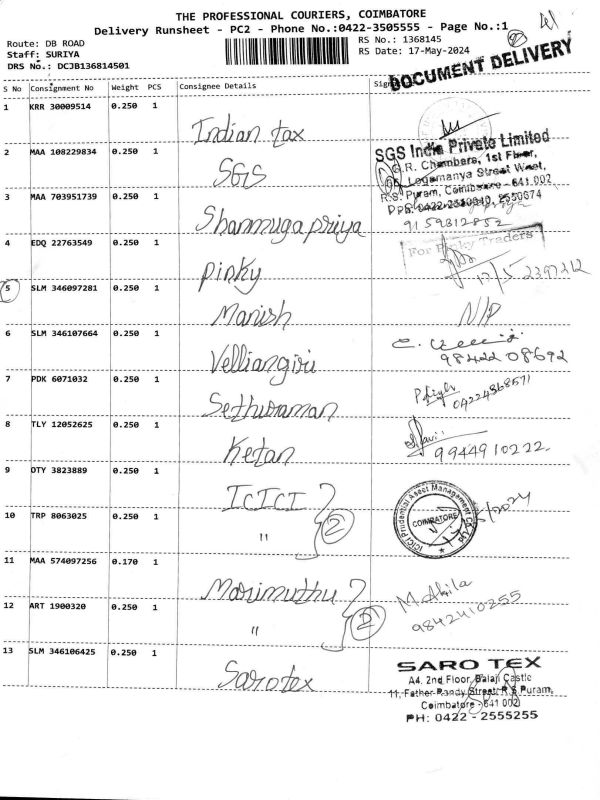 THE PROFESSIONAL COURIERS, COIMBATORE
Delivery Runsheet - PC2 - Phone No.:0422-3505555 - Page No.:1
Route: DB ROAD
Staff: SURIYA
DRS No.: DCJB136814501
RS No.: 1368145
RS Date: 17-May-2024
DOCUMENT DELIVERY
S No Consignment No Weight PCS Consignee Details
1 KRR 30009514 0.250 1
Indian tax
2 MAA 108229834 0.250 1
SGS
SGS India Private Limited
G.R. Chambers, 1st Floor,
Logamanya Street West,
R.S. Puram, Coimbatore - 641 002
3 MAA 703951739 0.250 1
Shanmugapriya
9159312852
4 EDQ 22763549 0.250 1
Pinky
For Pinky Traders
17/5
5 SLM 346097281 0.250 1
Manish
N/P
6 SLM 346107664 0.250 1
Velliangiri
98422 08692
7 PDK 6071032 0.250 1
Sethuraman
04224368571
8 TLY 12052625 0.250 1
Ketan
9944910222
9 OTY 3823889 0.250 1
ICICI
10 TRP 8063025 0.250 1
"
2
ICICI Prudential Asset Management Co Ltd
COIMBATORE
11 MAA 574097256 0.170 1
Marimuthu
M. Akila
9842410255
12 ART 1900320 0.250 1
"
2
13 SLM 346106425 0.250 1
Sarotex
SARO TEX
A4, 2nd Floor, Balaji Castle
11, Father Randy Street, R.S Puram,
Coimbatore - 641 002
PH: 0422 - 2555255